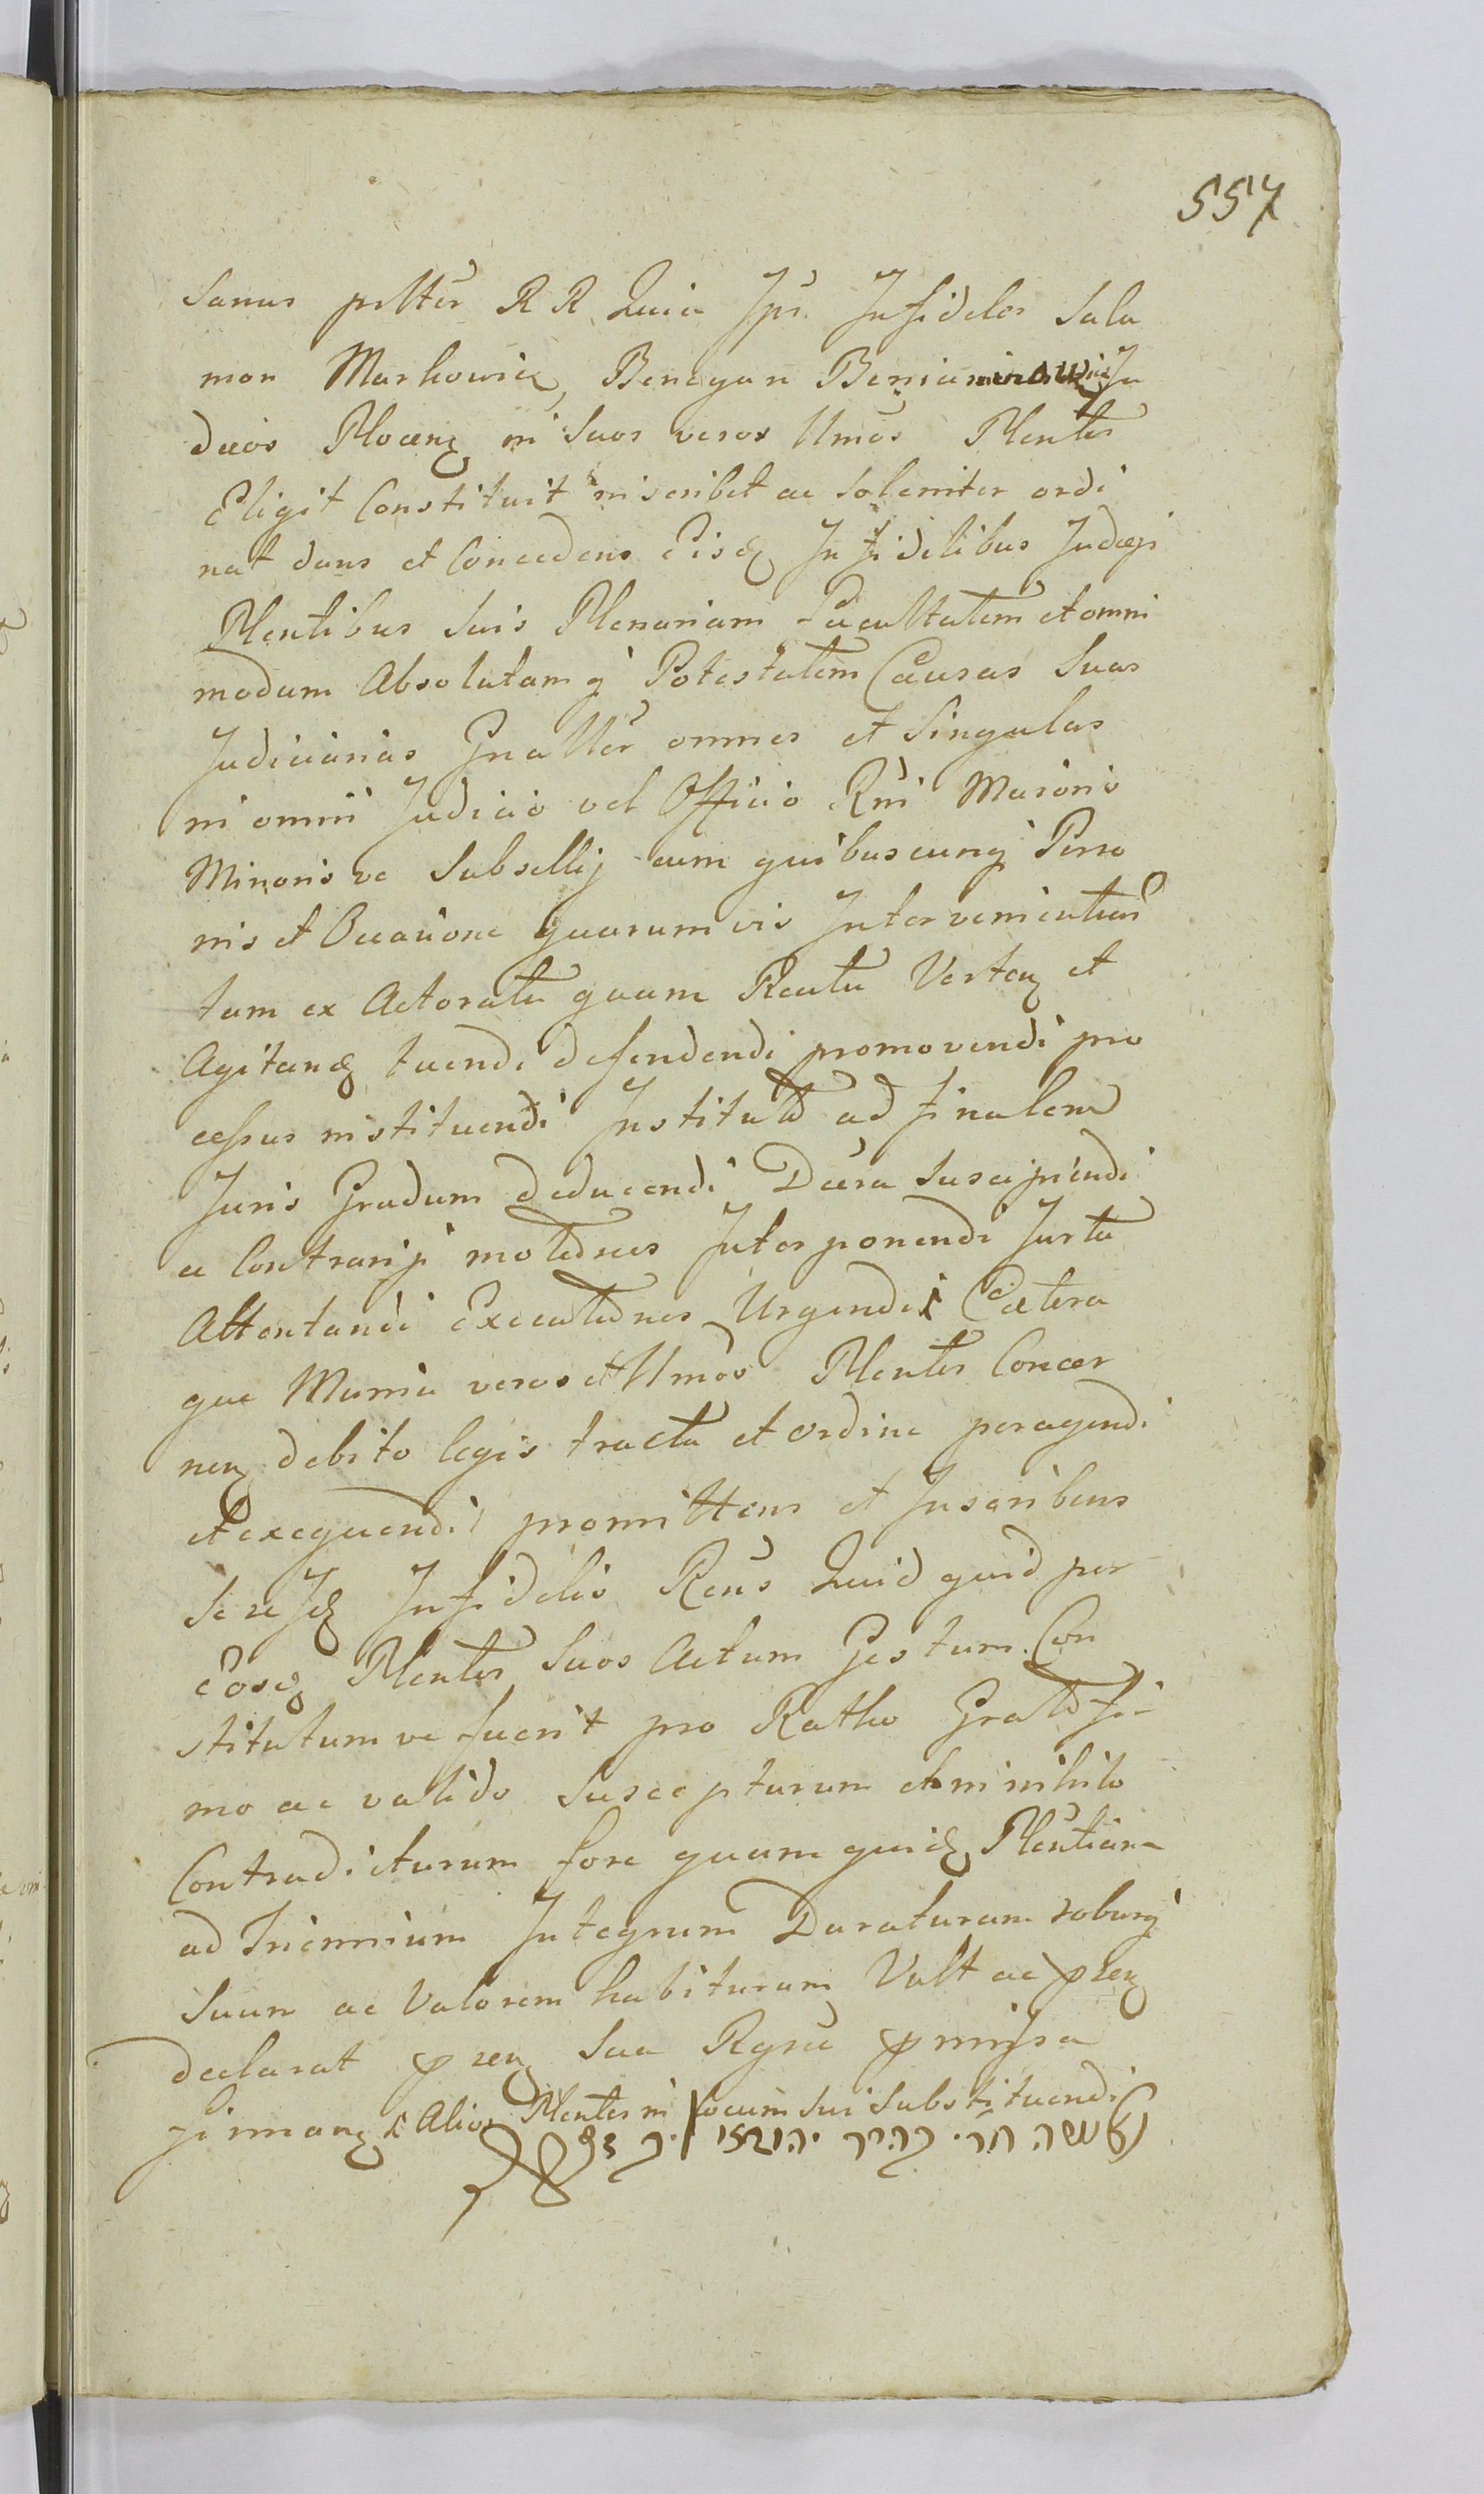 557
Sanus pᵣltĕr R R Quia Ips. Infideles Sala
mon Markowicz, Beniyan Beniaminowicz Ju
daeos Plocenȝ in Suos veros llmos Plentes
Eligit Constituit inscribet ac Solemiter ordi
nat dans et Concedens Eisdȝ Infidelibus Judaejs
Plentibus Suis Plenariam Facultatem et omni
modam Absolutamq̀ Potestatem Causas Suas
Judiciarias Gnallter omnes et Singulas
in omni Judicio vel Officio Rni Maioris
Minoris ve Subsellij cum quibuscunq̀ Perso
nis et Occasione quarumvis Intervenientium
tum ex Actoratu quam Reatu Vertenȝ et
Agitandȝ tuendi defendendi promovendi pro
cessus instituendi Institutos ad Finalem
Juris Gradum deducendi Decra Suscipiendi
a Contrarijs motiones Interponendi Jurta
Attentandi Executiones Urgendi Caetera
que Munia veros et llmos Plentes Concer
nenȝ debito legis tractu et ordine peragendi
et exequendi promittens et Inscribens
Se se Idȝ Infidelis Rens Quidquid per
Eosdȝ Plentes Suos Actum Gestum Con
stitutum ve fuerit pro Ratho Grato fir
mo ac vallido Suscepturum et in nihilo
Contradicturum fore quam quidȝ Plentiam
ad Triennium Integrum Duraturam roburq̀
Suum ac Valorem habituram Vult ac prenȝ
declarat prenȝ Sua Rgnu pmissa
firmanȝ & Alios Plentes in locum Sui Substituendi